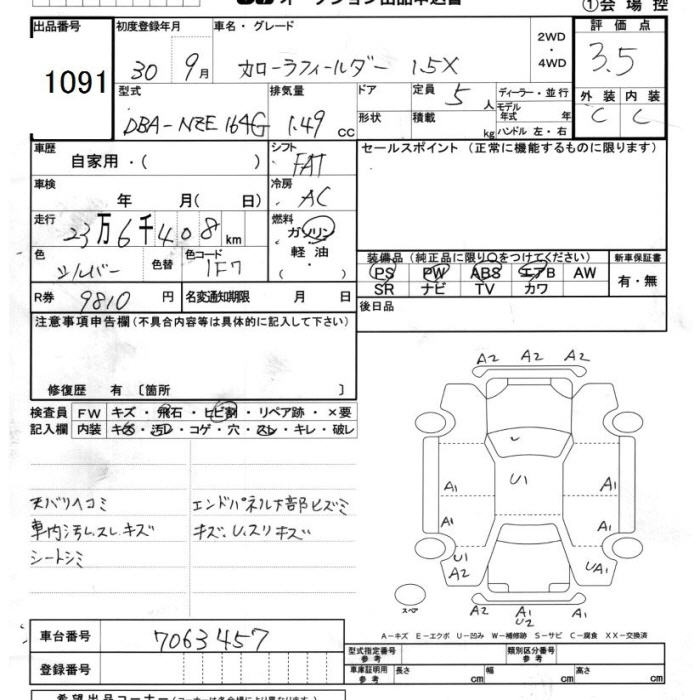 オークション出品申込書
①会場控
出品番号 1091
初度登録年月 30 9月
車名・グレード カローラフィールダー 1.5X
2WD・4WD
評価点 3.5
型式 DBA-NZE164G
排気量 1.49 cc
ドア
形状
定員 5人
積載 kg
ディーラー・並行
モデル年式 年
ハンドル 左・右
外装 内装
C C
車歴 自家用・( )
シフト FAT
セールスポイント (正常に機能するものに限ります)
車検 年 月( 日)
冷房 AC
走行 23万6千408km
燃料 ガソリン・軽油・( )
色 シルバー 色替
色コード 1F7
装備品 (純正品に限り○をつけてください)
PS PW ABS エアB AW
SR ナビ TV カワ
新車保証書 有・無
R券 9810円
名変通知期限 月 日
後日品
注意事項申告欄(不具合内容等は具体的に記入して下さい)
修復歴 有〔箇所 〕
検査員記入欄
FW キズ・飛石・ヒビ割・リペア跡・×要
内装 キズ・汚レ・コゲ・穴・スレ・キレ・破レ
天バリヘコミ
車内汚レ.スレ.キズ
シートシミ
エンドパネル下部ヒズミ
キズ.U.スリキズ
A2 A2 A2
U1
A1 A1
A1 A1
U1 A2
UA1
A2 A1 U2 A1
スペア
A-キズ E-エクボ U-凹み W-補修跡 S-サビ C-腐食 XX-交換済
車台番号 7063457
登録番号
型式指定番号 参考
類別区分番号 参考
車庫証明用 参考 長さ cm 幅 cm 高さ cm
希望出品コーナー(コーナーは各会場により異なります)